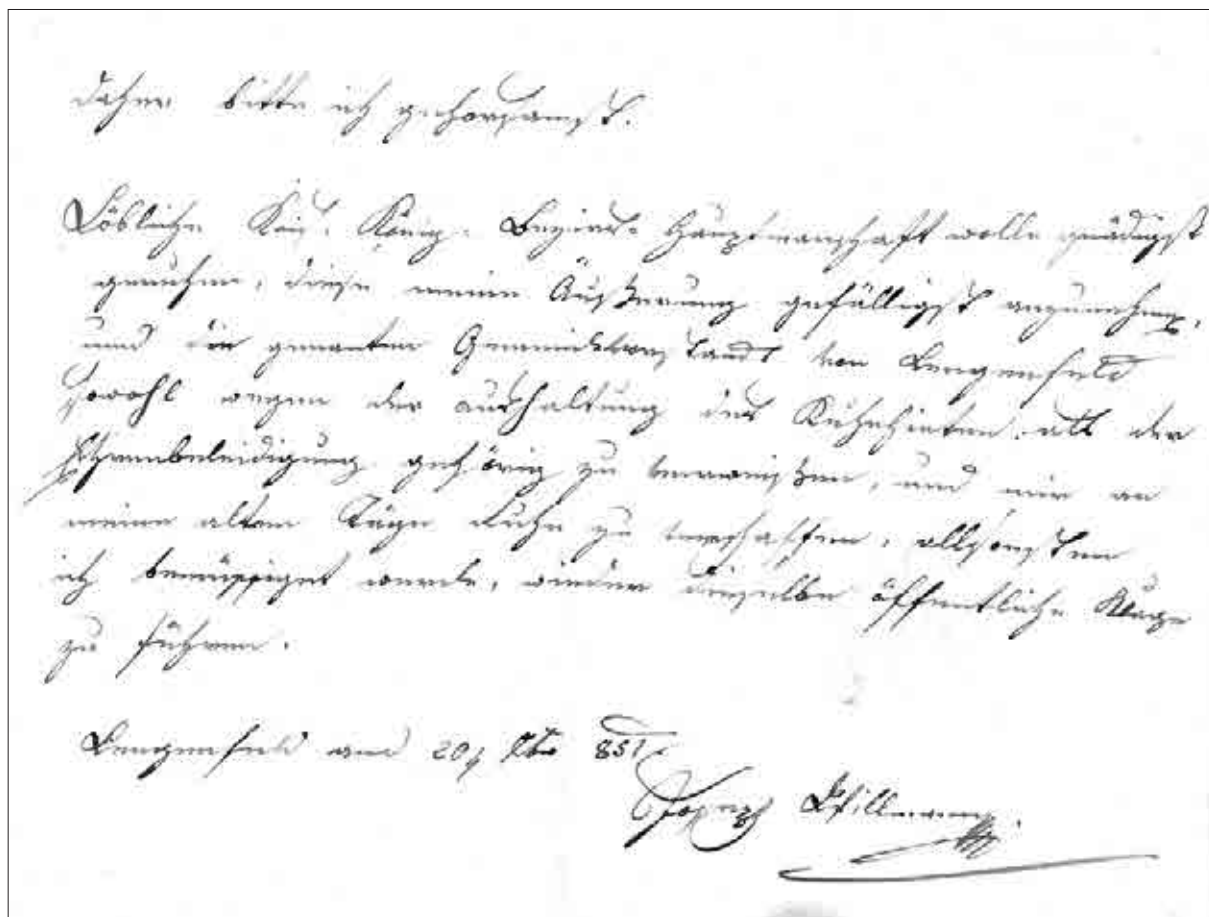 daher bitte ich gehorsamst.
Löbliche Kais. König. Bezirks Hauptmanschaft wolle gnädigst
geruhen, diese meine Äußerung gefälligst anzunehmen,
und die genanten Gemeindevorstandt von Lengenfeld
sowohl wegen der aushaltung des Kuhehirten als der
Ehrenbeleidigung gehörig zu verweisen, und mir an
meine alten Täge Ruhe zu verschaffen, allsonsten
ich bemüssiget werde, wieder dieselbe öffentliche
zu führen.
Lengenfeld am 20 851
Joseph